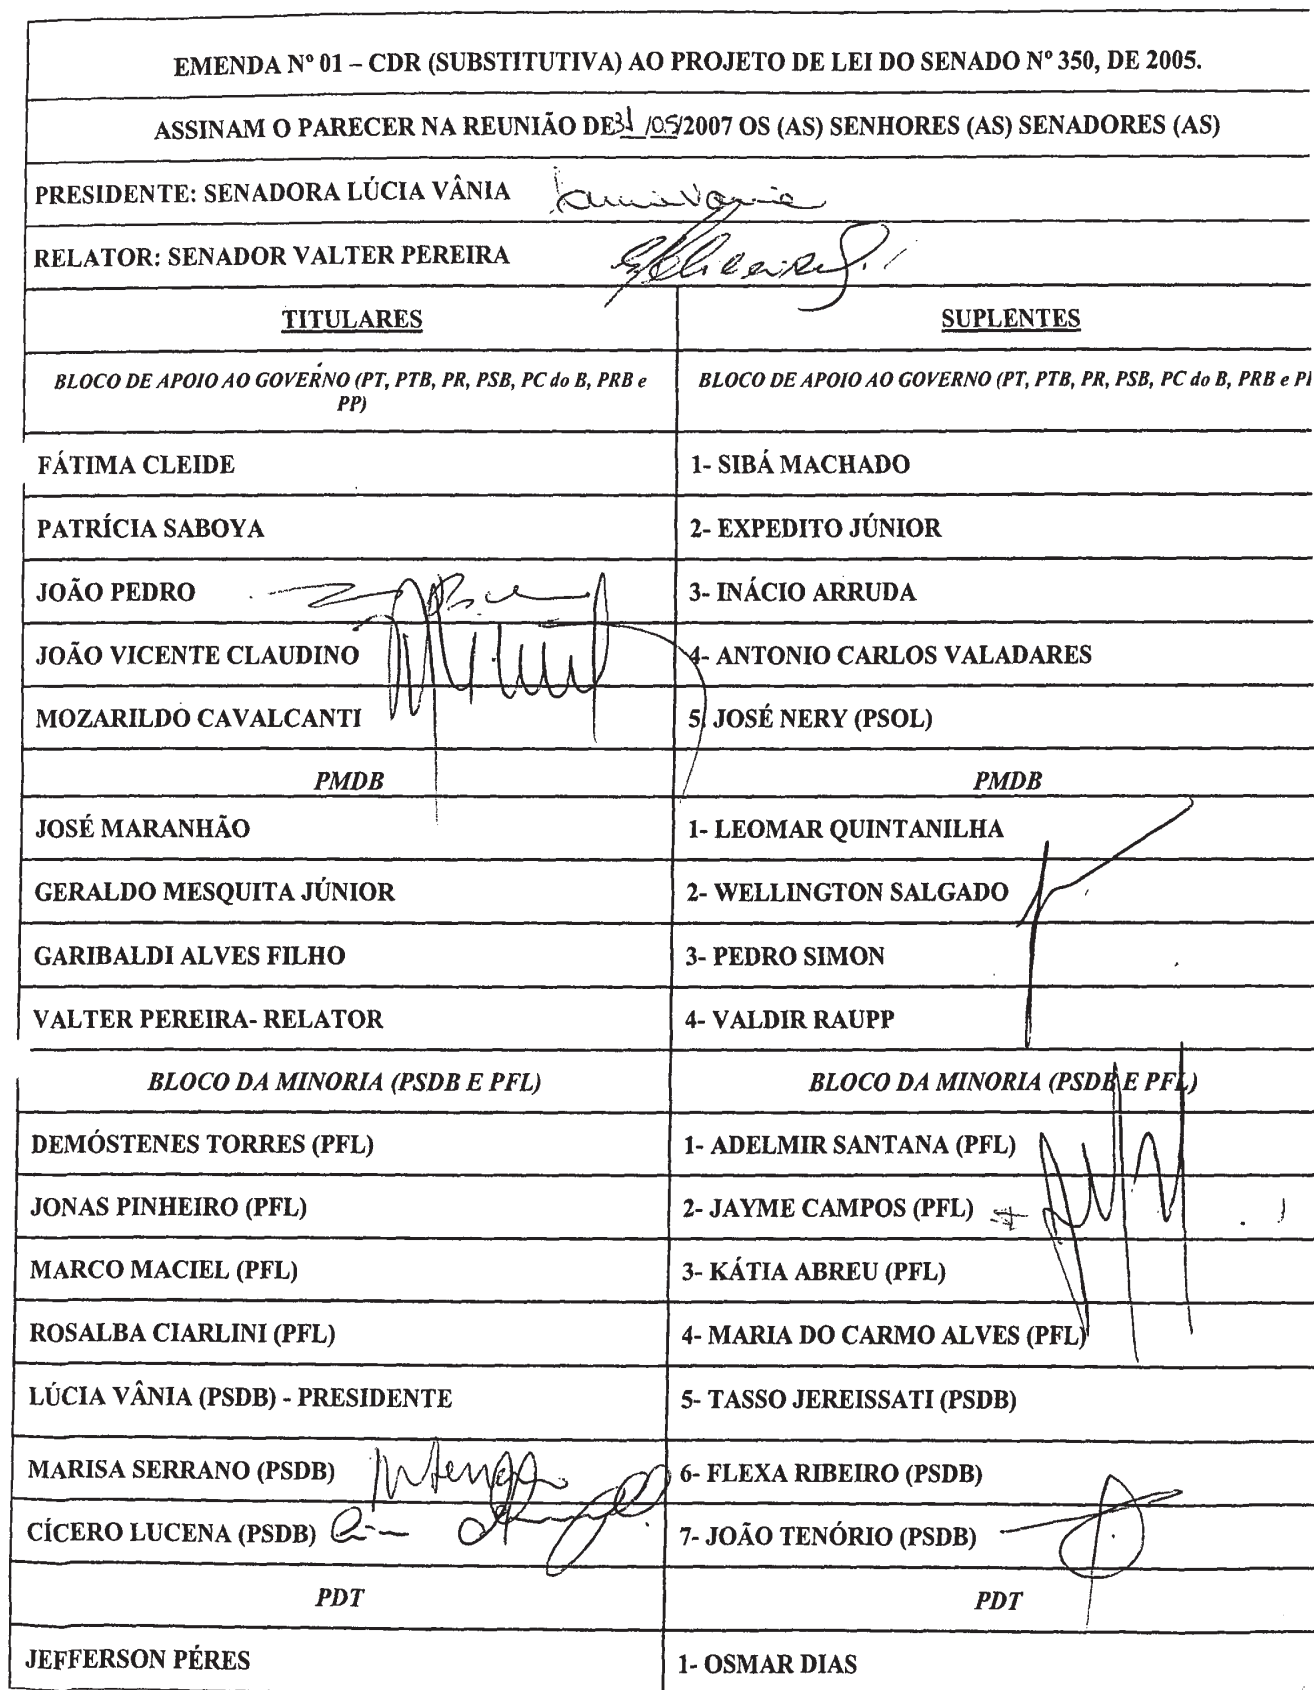 EMENDA Nº 01 – CDR (SUBSTITUTIVA) AO PROJETO DE LEI DO SENADO Nº 350, DE 2005.
ASSINAM O PARECER NA REUNIÃO DE 31/05/2007 OS (AS) SENHORES (AS) SENADORES (AS)
PRESIDENTE: SENADORA LÚCIA VÂNIA
RELATOR: SENADOR VALTER PEREIRA
TITULARES
SUPLENTES
BLOCO DE APOIO AO GOVERNO (PT, PTB, PR, PSB, PC do B, PRB e
PP)
BLOCO DE APOIO AO GOVERNO (PT, PTB, PR, PSB, PC do B, PRB e
FÁTIMA CLEIDE
1- SIBÁ MACHADO
PATRÍCIA SABOYA
2- EXPEDITO JÚNIOR
JOÃO PEDRO
3- INÁCIO ARRUDA
JOÃO VICENTE CLAUDINO
4- ANTONIO CARLOS VALADARES
MOZARILDO CAVALCANTI
5. JOSÉ NERY (PSOL)
PMDB
PMDB
JOSÉ MARANHÃO
1- LEOMAR QUINTANILHA
GERALDO MESQUITA JÚNIOR
2- WELLINGTON SALGADO
GARIBALDI ALVES FILHO
3- PEDRO SIMON
VALTER PEREIRA- RELATOR
4- VALDIR RAUPP
BLOCO DA MINORIA (PSDB E PFL)
BLOCO DA MINORIA (PSDB E PFL)
DEMÓSTENES TORRES (PFL)
1- ADELMIR SANTANA (PFL)
JONAS PINHEIRO (PFL)
2- JAYME CAMPOS (PFL)
MARCO MACIEL (PFL)
3- KÁTIA ABREU (PFL)
ROSALBA CIARLINI (PFL)
4- MARIA DO CARMO ALVES (PFL)
LÚCIA VÂNIA (PSDB) - PRESIDENTE
5- TASSO JEREISSATI (PSDB)
MARISA SERRANO (PSDB)
6- FLEXA RIBEIRO (PSDB)
CÍCERO LUCENA (PSDB)
7- JOÃO TENÓRIO (PSDB)
PDT
PDT
JEFFERSON PÉRES
1- OSMAR DIAS